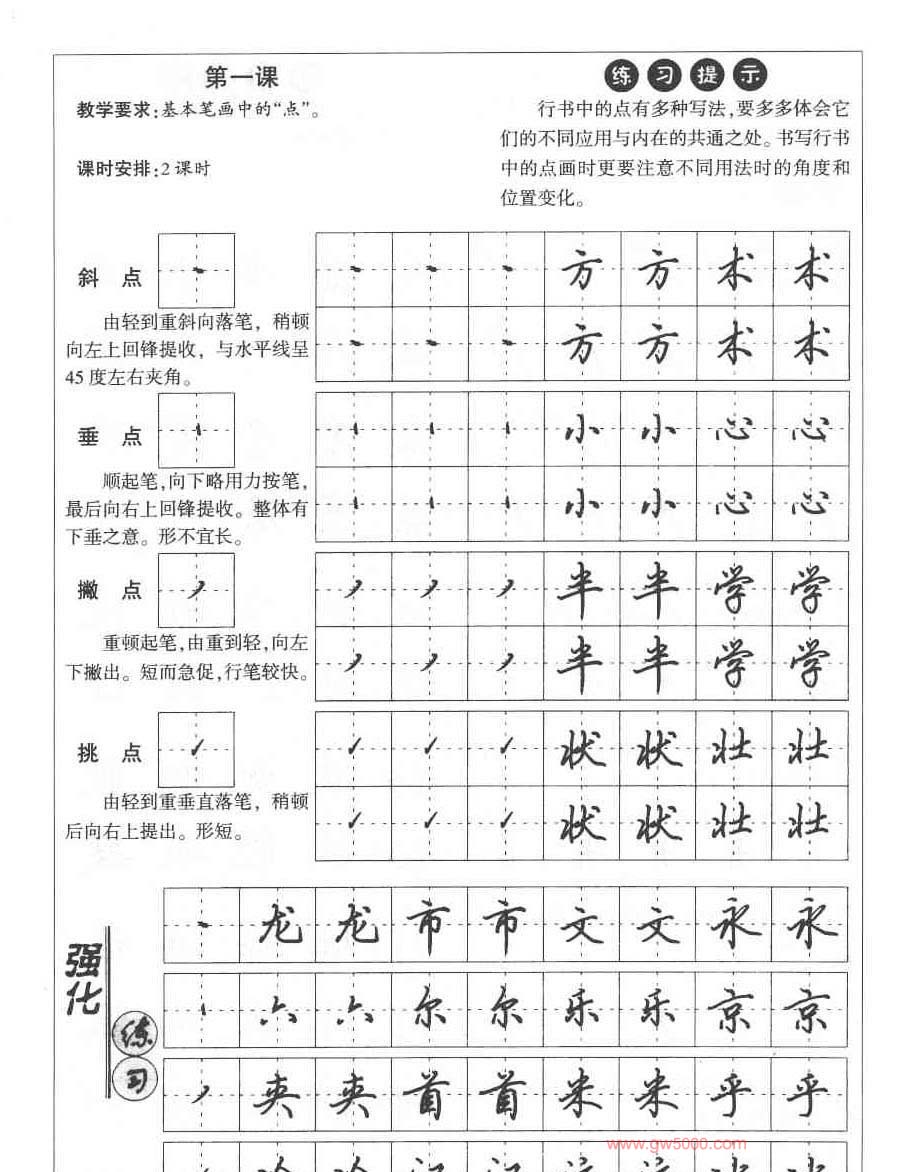 第一课
教学要求:基本笔画中的“点”。
课时安排:2 课时
练习提示
行书中的点有多种写法,要多多体会它
们的不同应用与内在的共通之处。书写行书
中的点画时更要注意不同用法时的角度和
位置变化。
斜 点
由轻到重斜向落笔，稍顿
向左上回锋提收，与水平线呈
45 度左右夹角。
方 方 术 术
方 方 术 术
垂 点
顺起笔,向下略用力按笔,
最后向右上回锋提收。整体有
下垂之意。形不宜长。
小 小 心 心
小 小 心 心
撇 点
重顿起笔,由重到轻,向左
下撇出。短而急促,行笔较快。
半 半 学 学
半 半 学 学
挑 点
由轻到重垂直落笔，稍顿
后向右上提出。形短。
状 状 壮 壮
状 状 壮 壮
强化
练习
龙 龙 市 市 文 文 永 永
六 六 尔 尔 乐 乐 京 京
夹 夹 首 首 米 米 乎 乎
www.gw5000.com